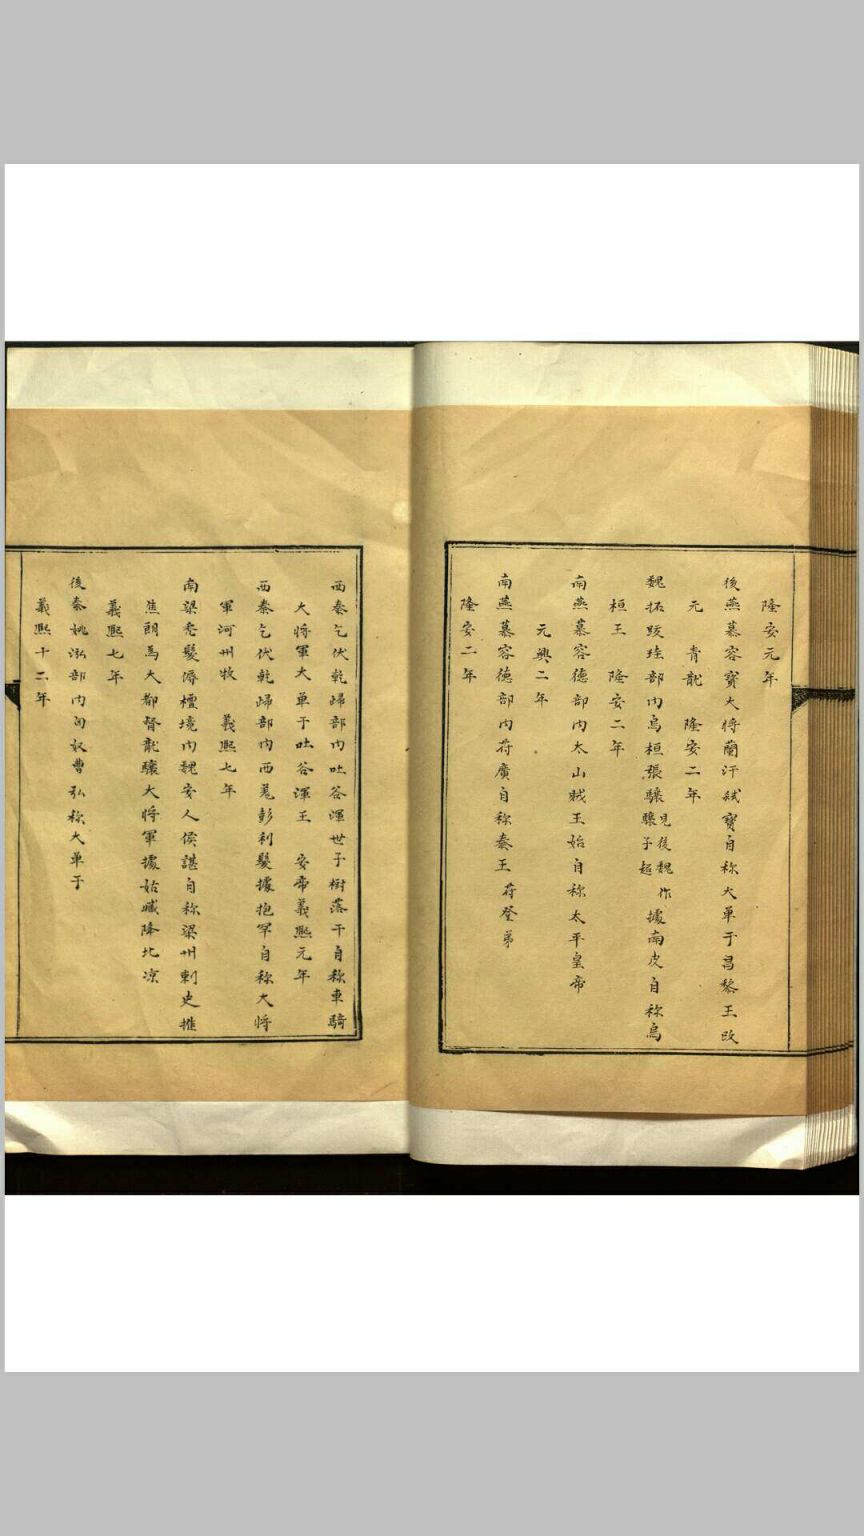 隆安元年
後燕慕容寶大將蘭汗弑寶自称大单于昌黎王改
元青龍 隆安二年
魏拓跋珪部内烏桓張驤驤見後魏子超作據南皮自称烏
桓王 隆安二年
南燕慕容德部内太山賊王始自称太平皇帝
元興二年
南燕慕容德部内苻廣自称秦王苻登弟
隆安二年
西秦乞伏乾歸部内吐谷渾世子樹落干自称車騎
大將軍大单于吐谷渾王 安帝義熙元年
西秦乞伏乾歸部内西羌彭利髮據抱罕自称大將
軍河州牧 義熙七年
南梁秃髮傉檀境内魏安人侯諶自称梁州刺史推
焦朗為大都督龍驤大將軍據姑臧降北凉
義熙七年
後秦姚泓部内匈奴曹弘称大单于
義熙十二年